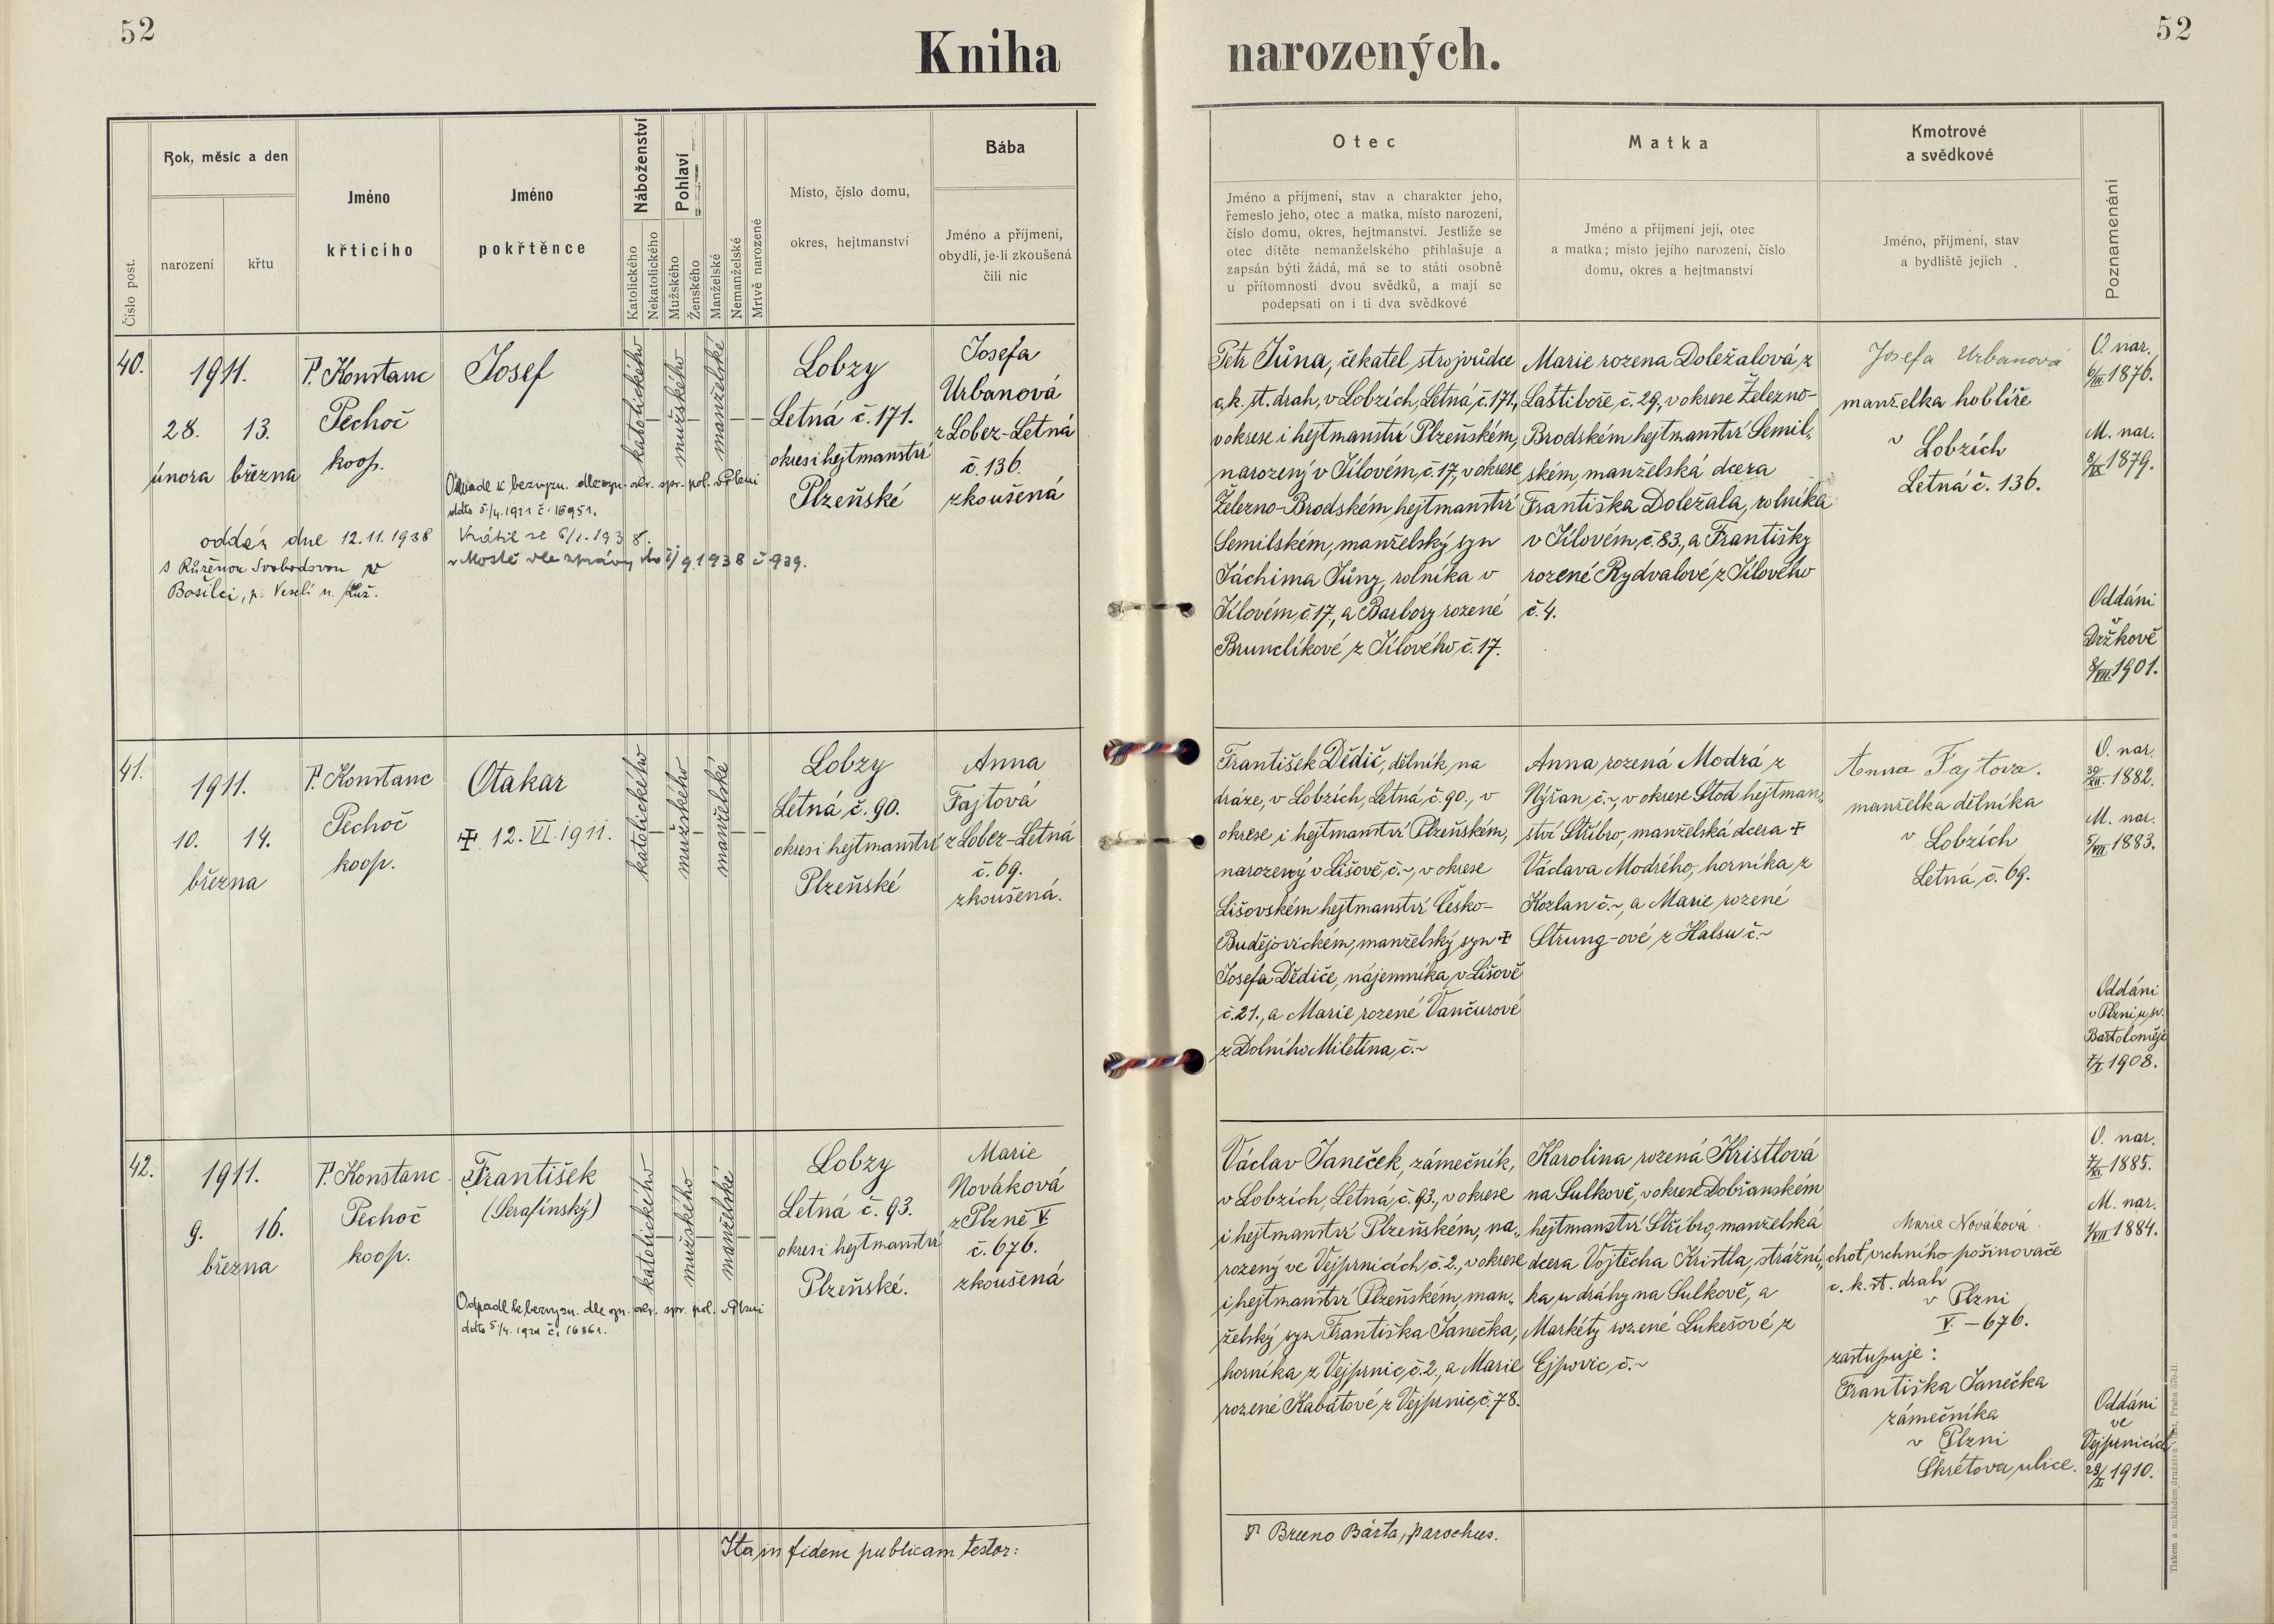 52
Kniha
narozených.
52
Číslo post.
Rok, měsíc a den
narození
křtu
Jméno
křtícího
Jméno
pokřtěnce
Náboženství
Katolického
Nekatolického
Pohlaví
Mužského
Ženského
Manželské
Nemanželské
Mrtvě narozené
Místo, číslo domu,
okres, hejtmanství
Bába
Jméno a příjmení,
obydlí, je-li zkoušená
čili nic
Otec
Jméno a příjmení, stav a charakter jeho,
řemeslo jeho, otec a matka, místo narození,
číslo domu, okres, hejtmanství. Jestliže se
otec dítěte nemanželského přihlašuje a
zapsán býti žádá, má se to státi osobně
u přítomnosti dvou svědků, a mají se
podepsati on i ti dva svědkové
Matka
Jméno a příjmení její, otec
a matka; místo jejího narození, číslo
domu, okres a hejtmanství
Kmotrové
a svědkové
Jméno, příjmení, stav
a bydliště jejich
Poznamenání
40.
1911.
28. 13.
února března
P. Konstanc
Pechoč
koop.
Josef
Odpadl k bezvyzn. dle ozn. okr. spr. pol. v Plzni
ddto 5/4. 1921 č. 16951.
Vrátil se 6/1. 1938.
v Mostě dle zprávy
1938 č 939.
oddán dne 12.11.1938
s Růženou Svobodovou v
Bošilci, p. Veselí n. Luž.
katolického
mužského
manželské
Lobzy
Letná č. 171.
okres i hejtmanství
Plzeňské
Josefa
Urbanová
z Lobez-Letná
č. 136.
zkoušená
Petr Jůna, čekatel strojvůdce
c. k. st. drah, v Lobzích, Letná č. 171.,
v okrese i hejtmanství Plzeňském,
narozený v Jílovém, č. 17., v okrese
Železno-Brodském, hejtmanství
Semilském, manželský syn
Jáchima Jůny, rolníka v
Jílovém č. 17., a Barbory rozené
Brunclíkové z Jílového č. 17.
Marie rozena Doležalová, z
Laštiboře, č. 29., v okrese Železno-
Brodském hejtmanství Semil-
ském, manželská dcera
Františka Doležala, rolníka
v Jílovém, č. 83., a Františky
rozené Rydvalové, z Jílového
č. 4.
Josefa Urbanová
manželka hoblíře
v Lobzích
Letná č. 136.
O. nar.
6/III. 1876.
M. nar.
8/IX 1879.
Oddáni
v
Držkově
8/VII. 1901.
41.
1911.
10. 14.
března
P. Konstanc
Pechoč
koop.
Otakar
✝ 12. VI. 1911.
katolického
mužského
manželské
Lobzy
Letná č. 90.
okres i hejtmanství
Plzeňské
Anna
Fajtová
z Lobez-Letná
č. 69.
zkoušená.
František Dědič, dělník na
dráze, v Lobzích, Letná, č. 90., v
okrese i hejtmanství Plzeňském,
narozený v Lišově, č. ~, v okrese
Lišovském hejtmanství Česko-
Budějovickém, manželský syn ✝
Josefa Dědiče, nájemníka, v Lišově
č. 21., a Marie rozené Vančurové
z Dolního Miletína, č. ~
Anna rozená Modrá z
Nýřan, č. ~, v okrese Stod hejtman-
ství Stříbro, manželská dcera ✝
Václava Modrého, horníka, z
Kozlan č. ~, a Marie rozené
Strung-ové z Halsu č. ~
Anna Fajtova.
manželka dělníka
v Lobzích
Letná, č. 69.
O. nar.
30/XII. 1882.
M. nar.
5/VII 1883.
Oddáni
v Plzni u sv.
Bartoloměje
1908.
42.
1911.
9. 16.
března
P. Konstanc
Pechoč
koop.
František
(Serafínský)
Odpadl k bezvyzn. dle ozn. okr. spr. pol. v Plzni
ddto 5/4. 1921 č. 16861.
katolického
mužského
manželské
Lobzy
Letná č. 93.
okres i hejtmanství
Plzeňské.
Marie
Nováková
z Plzně V.
č. 676.
zkoušená
Václav Janeček, zámečník,
v Lobzích, Letná, č. 93., v okrese
i hejtmanství Plzeňském, na-
rozený ve Vejprnicích, č. 2., v okrese
i hejtmanství Plzeňském, man-
želský syn Františka Janečka,
horníka z Vejprnic, č. 2., a Marie
rozené Kabátové z Vejprnic, č. 78.
Karolina rozená Kristlová
na Sulkově, v okrese Dobřanském
hejtmanství Stříbro, manželská
dcera Vojtěcha Kristla, strážní-
ka u dráhy na Sulkově, a
Markéty rozené Lukešové z
Ejpovic, č. ~
Marie Nováková
choť vrchního pošinovače
c. k. st. drah
v Plzni
V. – 676.
zastupuje:
Františka Janečka
zámečníka
v Plzni
Škrétova ulice.
O. nar.
1885.
M. nar.
1/VII 1884.
Oddáni
ve
Vejprnicích
1910.
Ita in fidem publicam testor:
P Bruno Bárta, parochus.